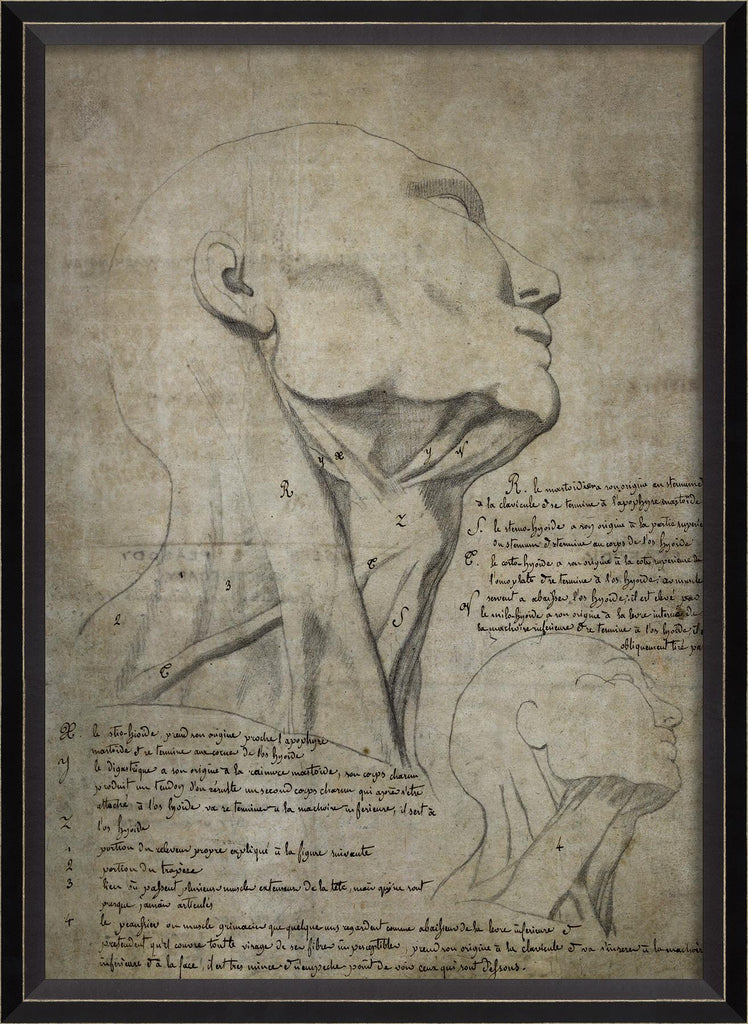 R. le mastoidien a son origine au sternum
a la clavicule et se termine a l'apophyse mastoïde
S. le sterno-hyoïde a son origine à la partie
du sternum et termine au corps de l'os hyoïde
T. le hyoïde a son origine à la cote superieure de
l'omoplate et se termine à l'os hyoïde; ce muscle
servent a abaisser l'os hyoïde; il est
V le milo-hyoïde a son origine à la levre interne de
la machoire inferieure et se termine à l'os hyoïde; il
obliquement tiré
X. le hioïde, prend son origine proche l'apophyse
mastoïde et se termine aux corne de l'os hyoïde
y le digastrique a son origine a la rainure mastoïde, son corps charnu
produit un tendon d'ou résulte un second corps charnu qui apres s'etre
attaché à l'os hyoïde va se terminer a la machoire inferieure, il sert à
Z l'os hyoïde
1 portion du releveur propre expliqué à la figure suivante
2 portion du trapeze
3 lieu ou passent plusieurs muscle exterieurs de la tête, mais qui ne sont
presque jamais articulés
4 le peaussier ou muscle grimacier que quelque uns regardent comme abaisseur de la levre inferieure et
pretendent qu'il couvre tout le visage de ses fibre imperceptibles, prend son origine à la clavicule et va s'inserer à la machoire
inferieure et à la face, il est tres mince et n'empeche point de voir ceux qui sont dessous.
y x y V
R
Z
T
S
1 3
2
T
4